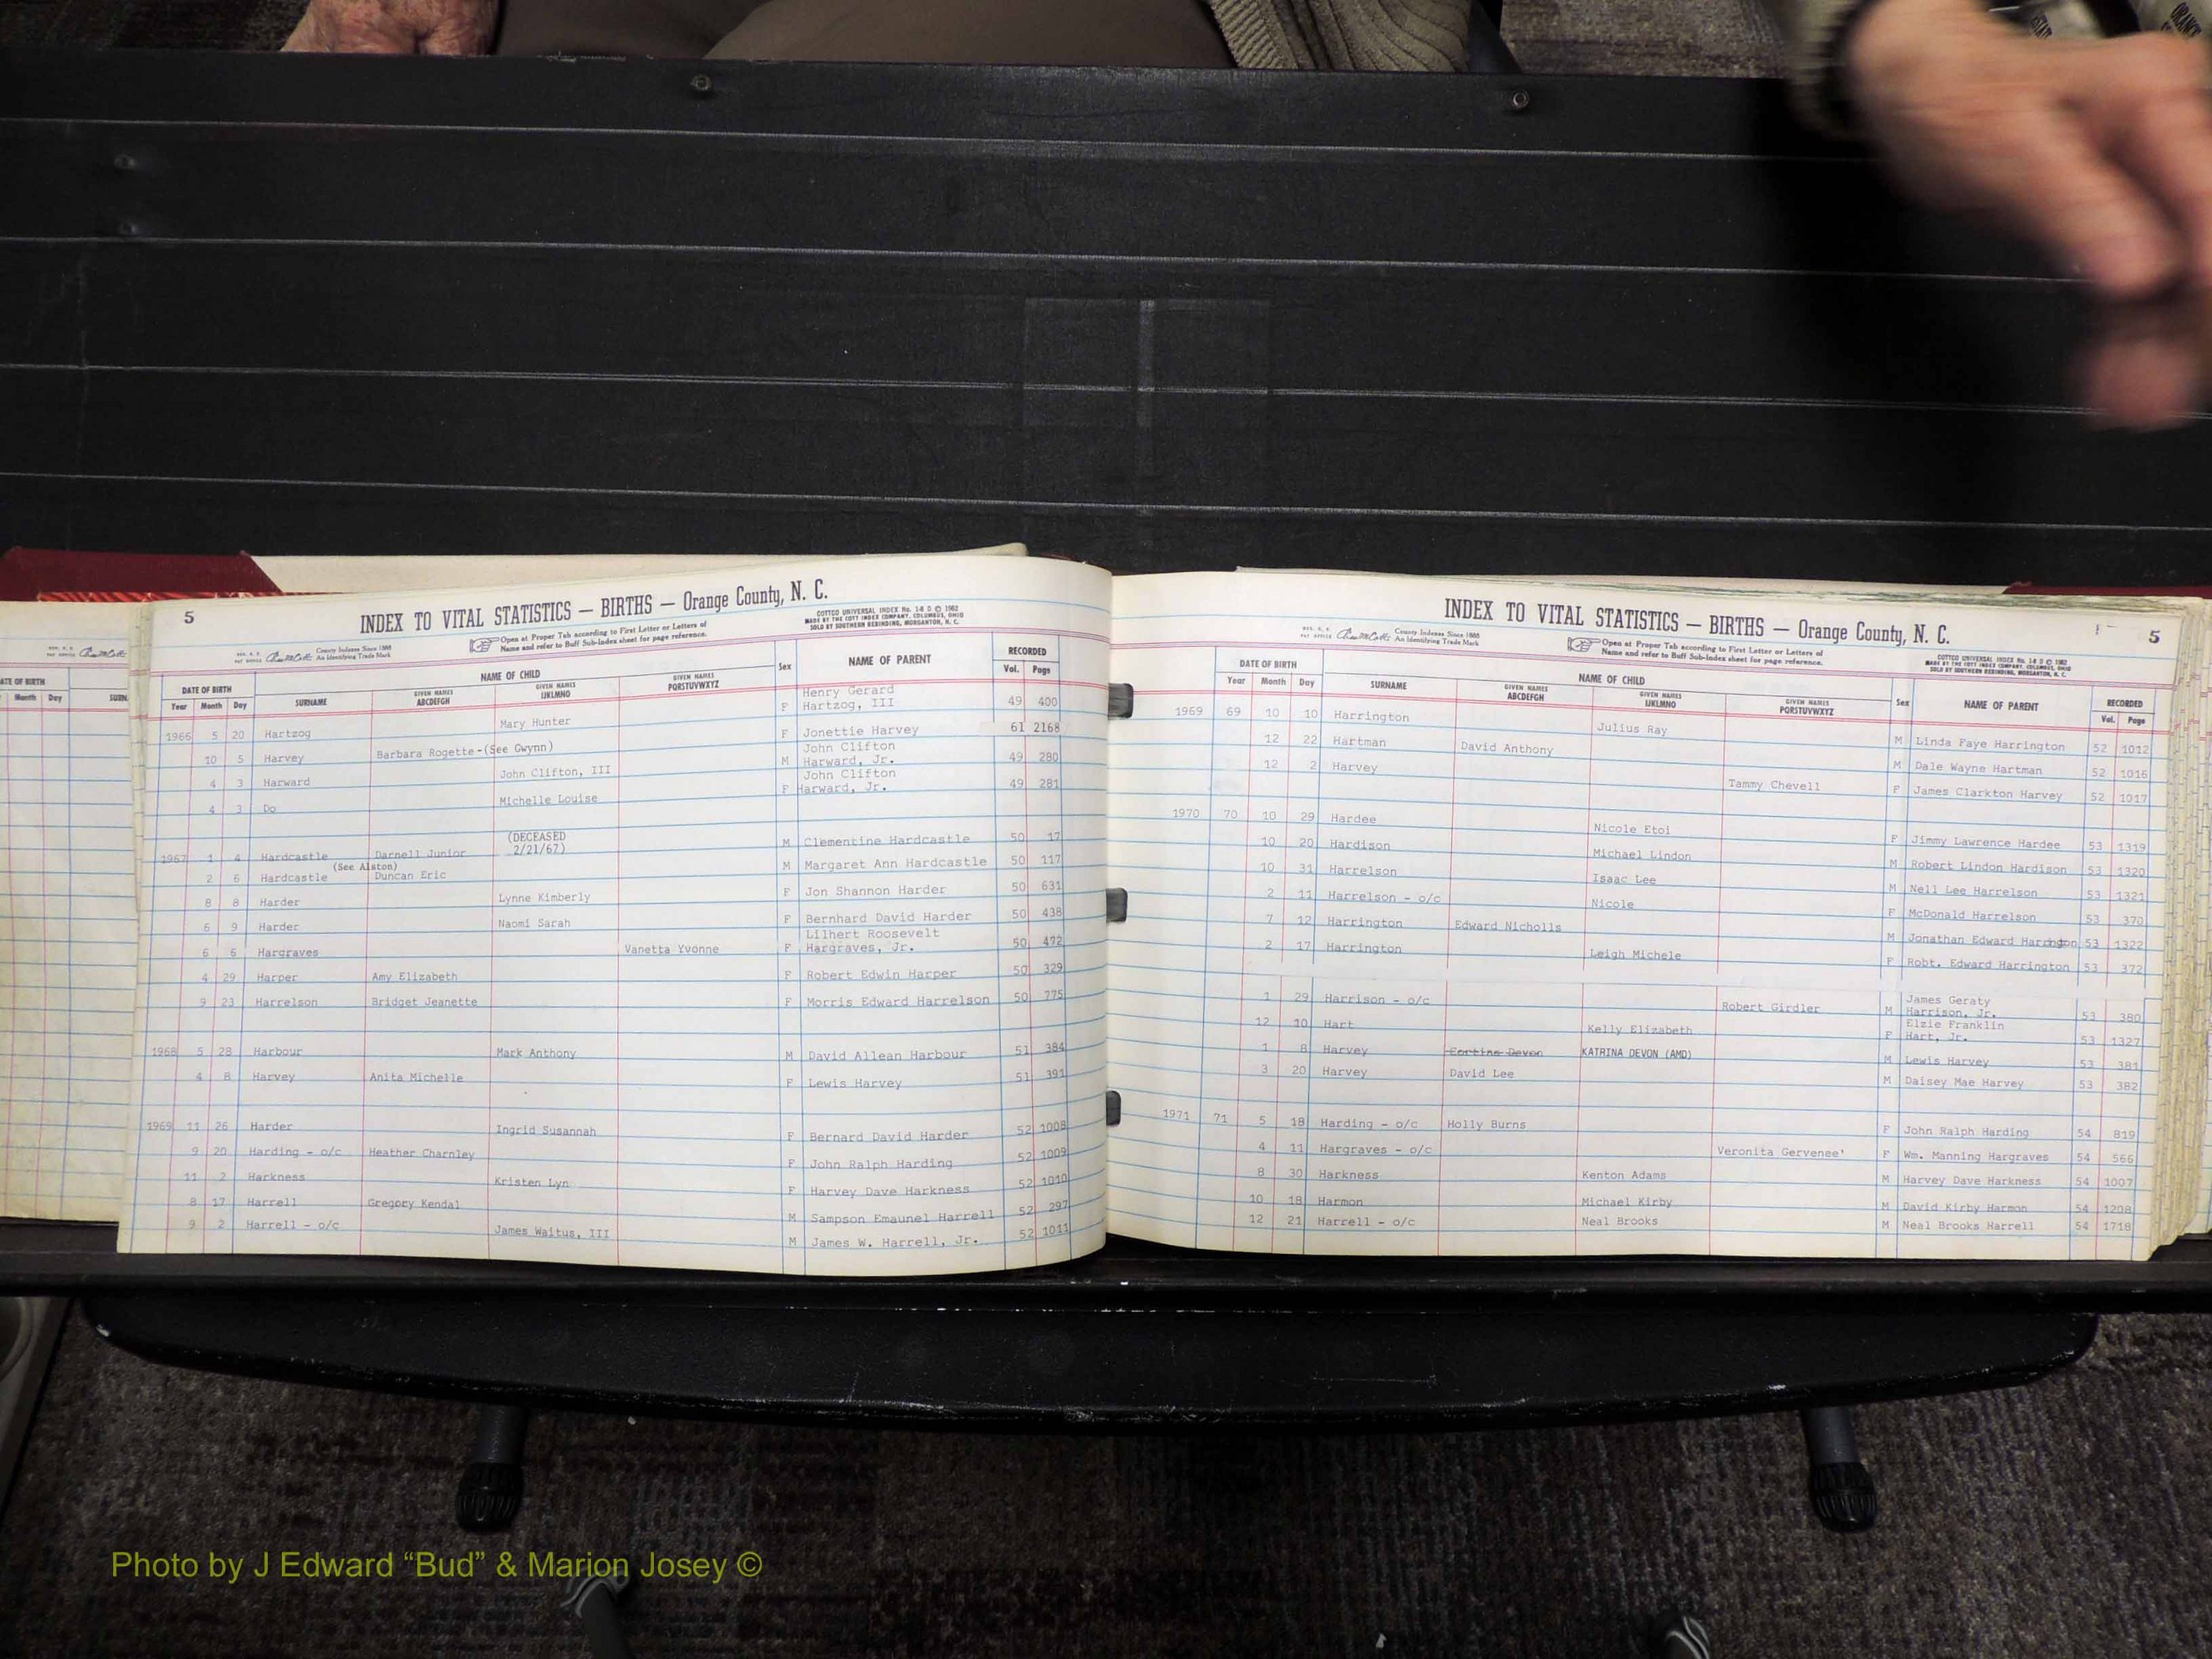 ORANGE
DATE OF BIRTH
Month Day
SURN
5
INDEX TO VITAL STATISTICS — BIRTHS — Orange County, N. C.
County Indexes Since 1888
An Identifying Trade Mark
Open at Proper Tab according to First Letter or Letters of
Name and refer to Buff Sub-Index sheet for page reference.
COTTCO UNIVERSAL INDEX No. 1-8 D © 1962
MADE BY THE COTT INDEX COMPANY, COLUMBUS, OHIO
SOLD BY SOUTHERN REBINDING, MORGANTON, N. C.
DATE OF BIRTH NAME OF CHILD Sex NAME OF PARENT RECORDED
Year Month Day SURNAME GIVEN NAMES ABCDEFGH GIVEN NAMES IJKLMNO GIVEN NAMES PQRSTUVWXYZ Vol. Page
1966 5 20 Hartzog Mary Hunter F Henry Gerard Hartzog, III 49 400
10 5 Harvey Barbara Rogette-(See Gwynn) F Jonettie Harvey 61 2168
4 3 Harward John Clifton, III M John Clifton Harward, Jr. 49 280
4 3 Do Michelle Louise F John Clifton Harward, Jr. 49 281
1967 1 4 Hardcastle Darnell Junior (DECEASED 2/21/67) M Clementine Hardcastle 50 17
(See Alston)
2 6 Hardcastle Duncan Eric M Margaret Ann Hardcastle 50 117
8 8 Harder Lynne Kimberly F Jon Shannon Harder 50 631
6 9 Harder Naomi Sarah F Bernhard David Harder 50 438
6 6 Hargraves Vanetta Yvonne F Lilhert Roosevelt Hargraves, Jr. 50 472
4 29 Harper Amy Elizabeth F Robert Edwin Harper 50 329
9 23 Harrelson Bridget Jeanette F Morris Edward Harrelson 50 775
1968 5 28 Harbour Mark Anthony M David Allean Harbour 51 384
4 8 Harvey Anita Michelle F Lewis Harvey 51 391
1969 11 26 Harder Ingrid Susannah F Bernard David Harder 52 1008
9 20 Harding - o/c Heather Charnley F John Ralph Harding 52 1009
11 2 Harkness Kristen Lyn F Harvey Dave Harkness 52 1010
8 17 Harrell Gregory Kendal M Sampson Emaunel Harrell 52 297
9 2 Harrell - o/c James Waitus, III M James W. Harrell, Jr. 52 1011
INDEX TO VITAL STATISTICS — BIRTHS — Orange County, N. C.
5
County Indexes Since 1888
An Identifying Trade Mark
Open at Proper Tab according to First Letter or Letters of
Name and refer to Buff Sub-Index sheet for page reference.
COTTCO UNIVERSAL INDEX No. 1-8 D © 1962
MADE BY THE COTT INDEX COMPANY, COLUMBUS, OHIO
SOLD BY SOUTHERN REBINDING, MORGANTON, N. C.
DATE OF BIRTH NAME OF CHILD Sex NAME OF PARENT RECORDED
Year Month Day SURNAME GIVEN NAMES ABCDEFGH GIVEN NAMES IJKLMNO GIVEN NAMES PQRSTUVWXYZ Vol. Page
1969 69 10 10 Harrington Julius Ray M Linda Faye Harrington 52 1012
12 22 Hartman David Anthony M Dale Wayne Hartman 52 1016
12 2 Harvey Tammy Chevell F James Clarkton Harvey 52 1017
1970 70 10 29 Hardee Nicole Etoi F Jimmy Lawrence Hardee 53 1319
10 20 Hardison Michael Lindon M Robert Lindon Hardison 53 1320
10 31 Harrelson Isaac Lee M Nell Lee Harrelson 53 1321
2 11 Harrelson - o/c Nicole F McDonald Harrelson 53 370
7 12 Harrington Edward Nicholls M Jonathan Edward Harrington 53 1322
2 17 Harrington Leigh Michele F Robt. Edward Harrington 53 372
1 29 Harrison - o/c Robert Girdler M James Geraty Harrison, Jr. 53 380
12 10 Hart Kelly Elizabeth F Elzie Franklin Hart, Jr. 53 1327
1 8 Harvey Devon KATRINA DEVON (AMD) M Lewis Harvey 53 381
3 20 Harvey David Lee M Daisey Mae Harvey 53 382
1971 71 5 18 Harding - o/c Holly Burns F John Ralph Harding 54 819
4 11 Hargraves - o/c Veronita Gervenee' F Wm. Manning Hargraves 54 566
8 30 Harkness Kenton Adams M Harvey Dave Harkness 54 1007
10 18 Harmon Michael Kirby M David Kirby Harmon 54 1208
12 21 Harrell - o/c Neal Brooks M Neal Brooks Harrell 54 1718
Photo by J Edward “Bud” & Marion Josey ©